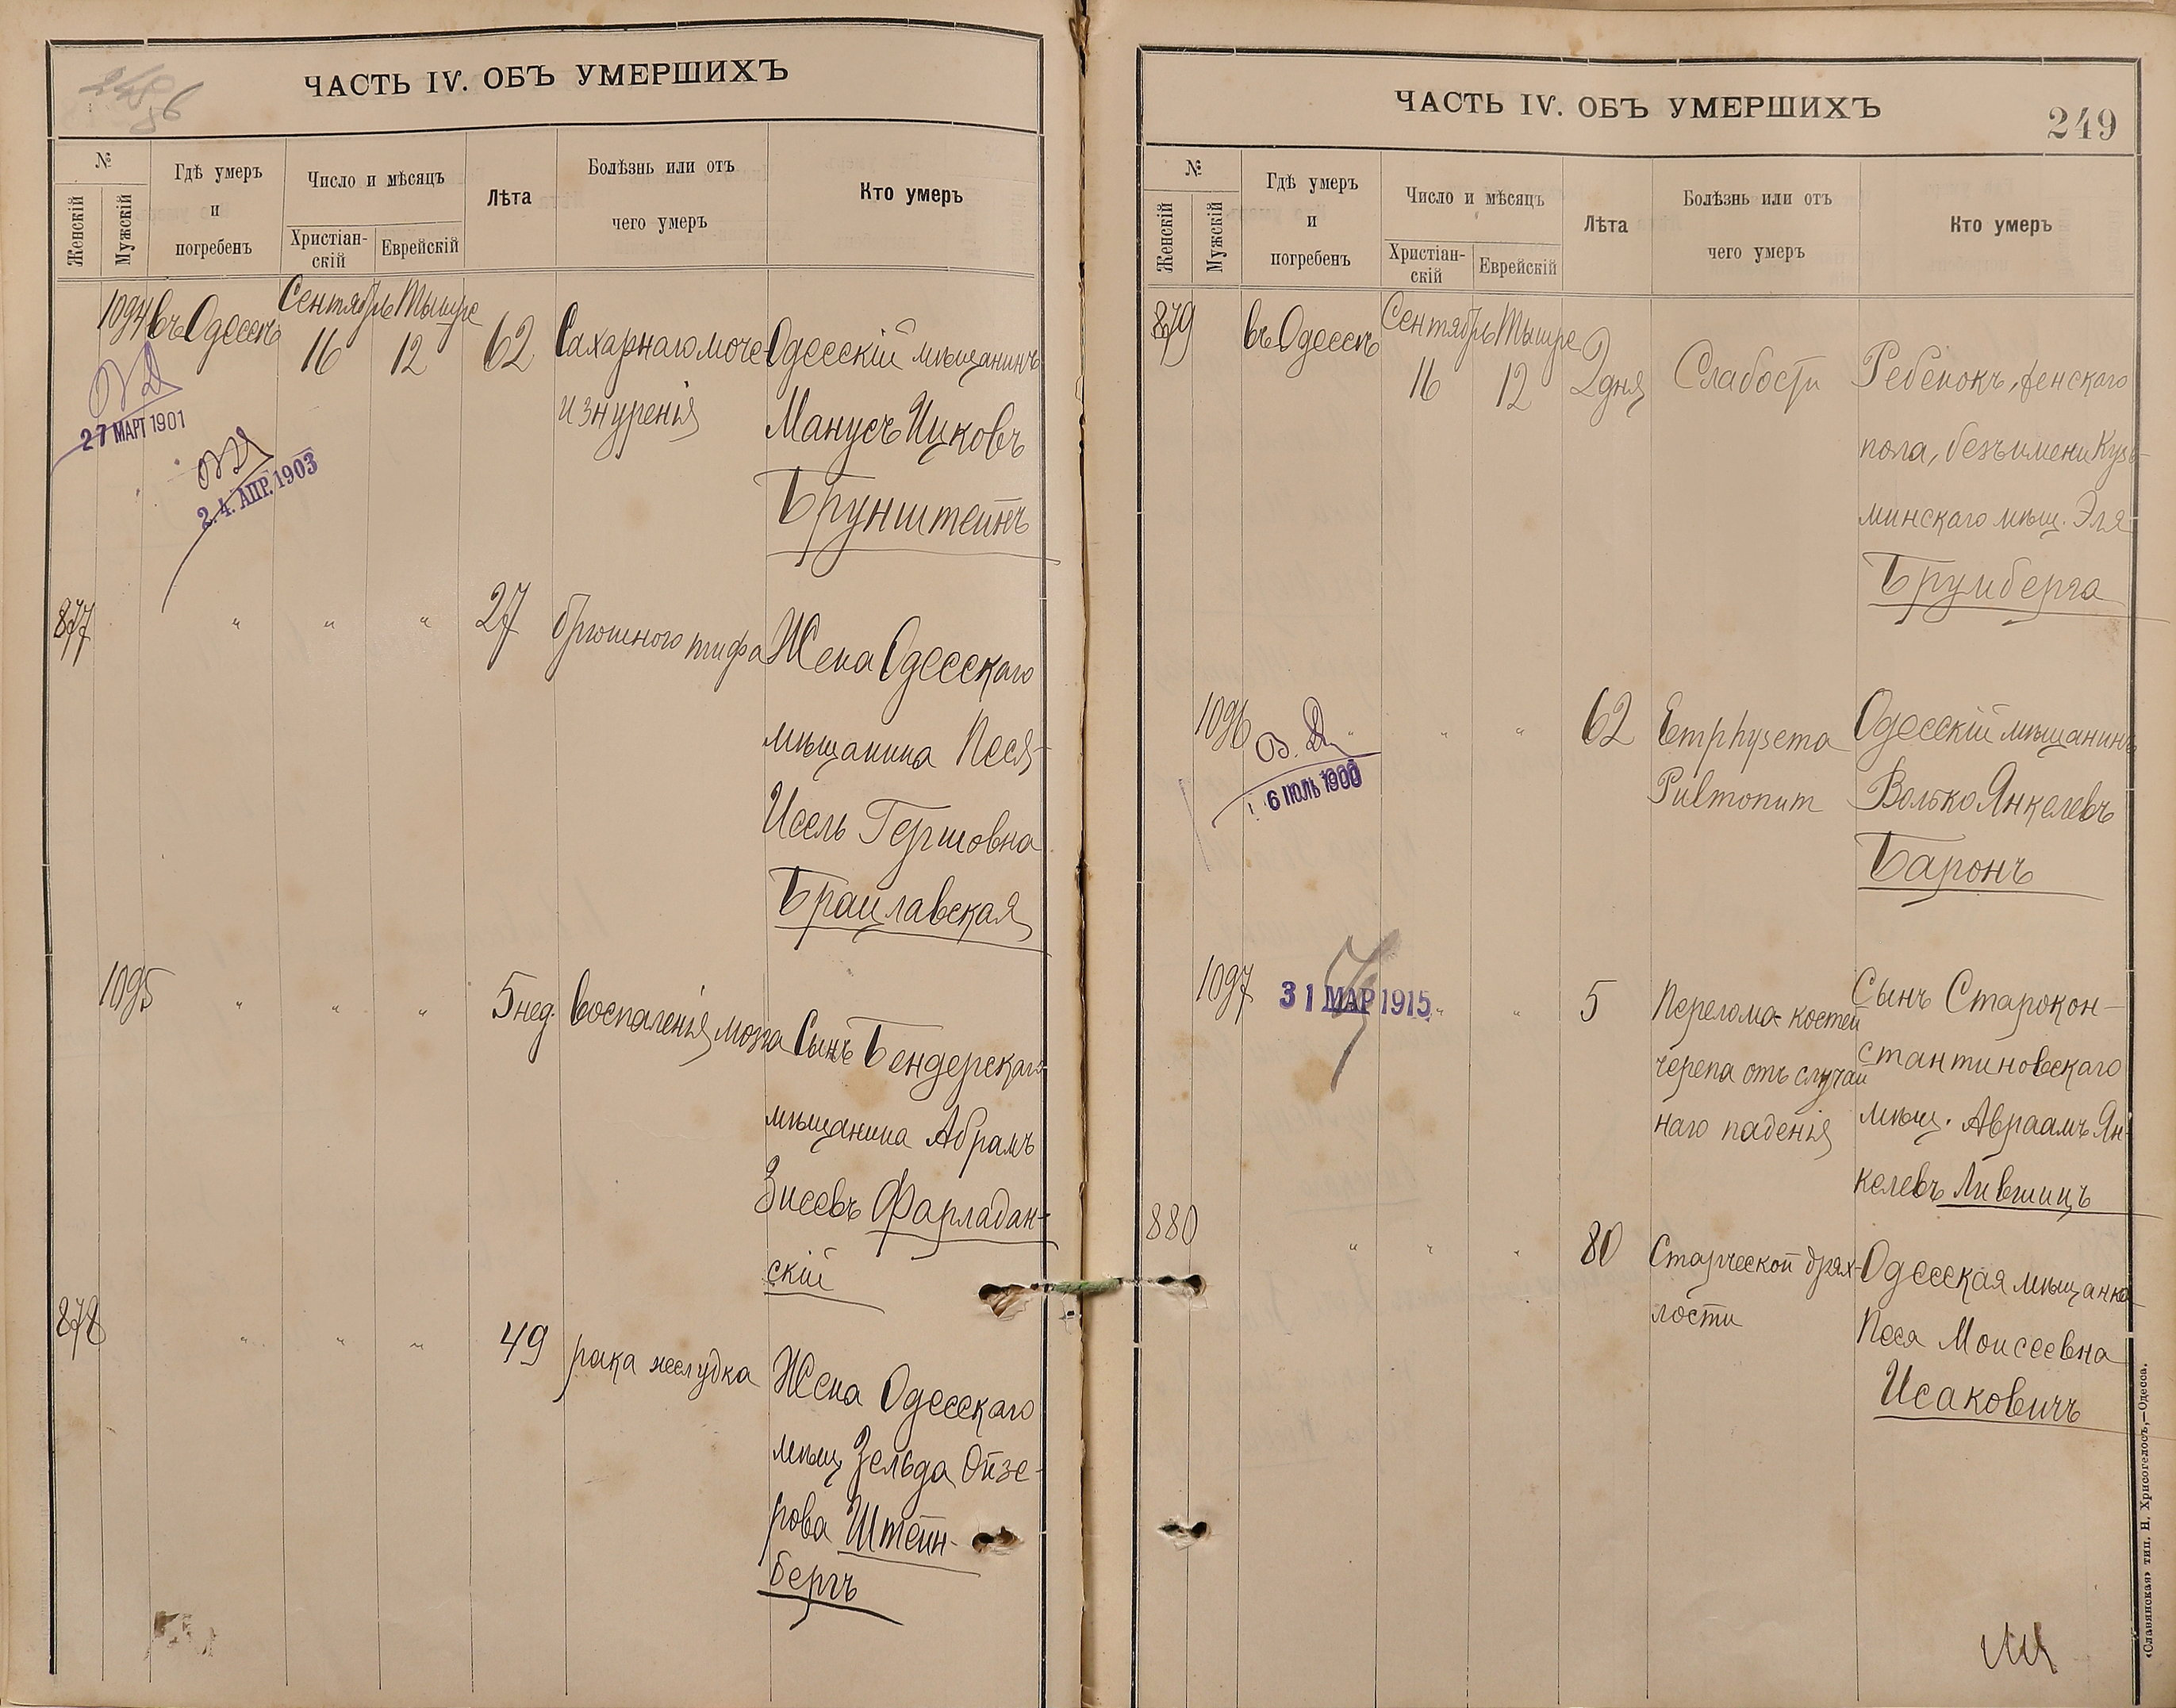 ЧАСТЬ IV. ОБЪ УМЕРШИХЪ
№
Женскій
Мужскій
Гдѣ умеръ
и
погребенъ
Число и мѣсяцъ
Христіан-
скій
Еврейскій
Лѣта
Болѣзнь или отъ
чего умеръ
Кто умеръ
1094 въ Одессѣ Сентябрь 16 Тышре 12 62 Сахарнаго моче-
изнуренія
Одесскій мѣщанинъ
Манусъ Ицковъ
Брунштейнъ
27 МАРТ 1901
24. АПР. 1903
877 " " " 27 брюшного тифа
Жена Одесскаго
мѣщанина Песя-
Исель Гершовна
Брацлавская
1095 " " " 5 нед. воспаленія мозга
Сынъ Бендерскаго
мѣщанина Абрамъ
Зисевъ Фарладан-
скій
878 " " " 49 рака желудка
Жена Одесскаго
мѣщ. Зельда Ойзе-
рова Штейн-
бергъ
ЧАСТЬ IV. ОБЪ УМЕРШИХЪ
249
№
Женскій
Мужскій
Гдѣ умеръ
и
погребенъ
Число и мѣсяцъ
Христіан-
скій
Еврейскій
Лѣта
Болѣзнь или отъ
чего умеръ
Кто умеръ
879 въ Одессѣ Сентябрь 16 Тышре 12 2 дня Слабости
Ребенокъ, женскаго
пола, безъ имени Кузь-
минскаго мѣщ. Эля
Брумберга
1096 " " " 62 Emphysema
Pulmonum
Одесскій мѣщанинъ
Волько Янкелевъ
Баронъ
6 ІЮЛЬ 1900
1097 31 МАР 1915 " " 5 Перелома костей
черепа отъ случай
наго паденія
Сынъ Старокон-
стантиновскаго
мѣщ. Авраамъ Ян-
келевъ Лившицъ
880 " " " 80 Старческой дрях-
лости
Одесская мѣщанка
Песя Моисеевна
Исаковичъ
«Славянская» тип. Н. Хрисогелосъ,—Одесса.